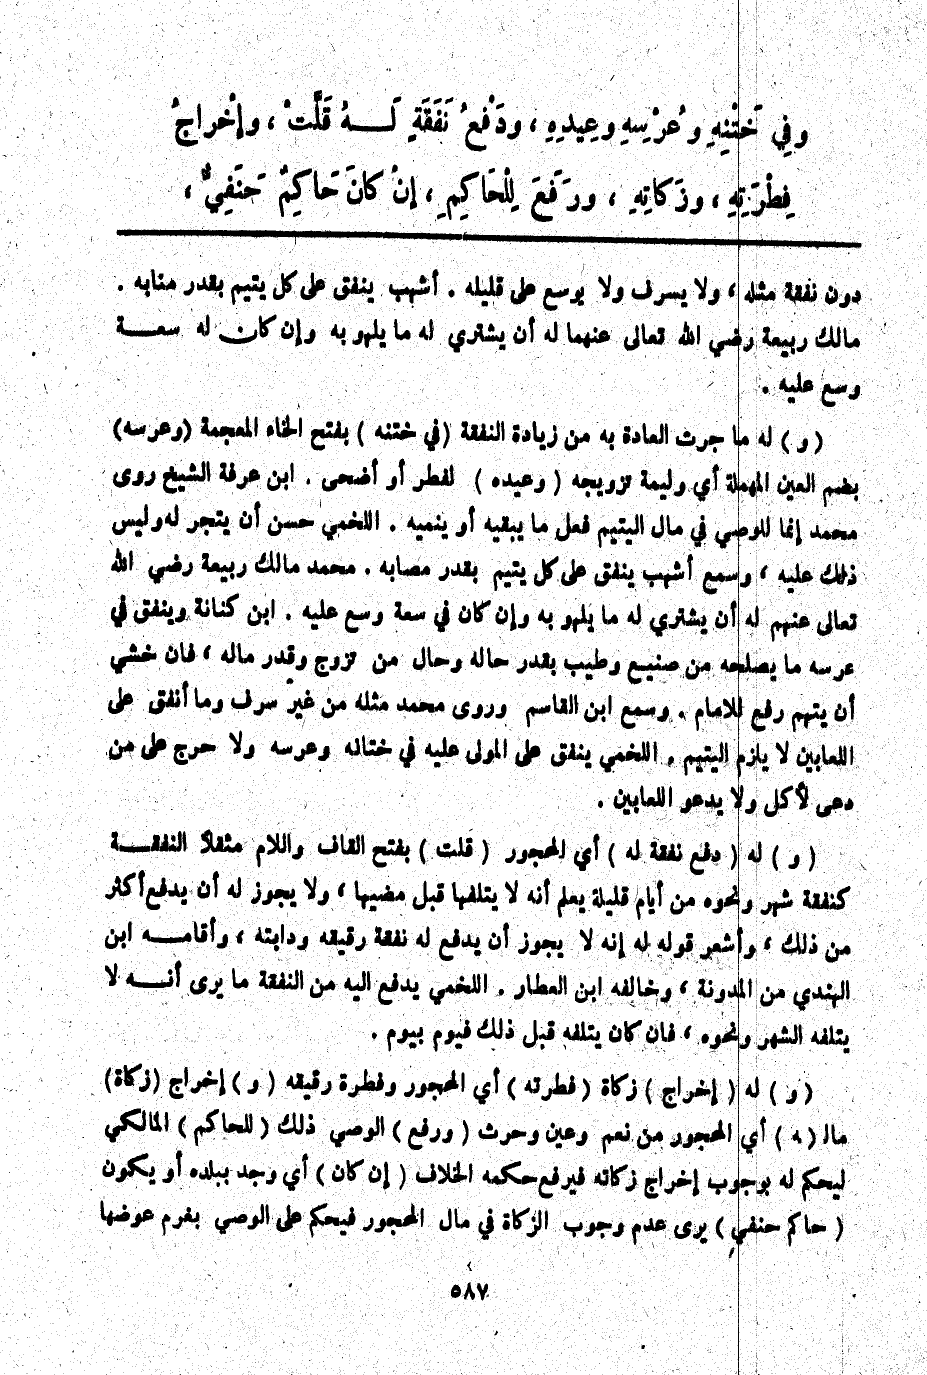 وفِي خَتْنِهِ وعُرْسِهِ وعِيدِهِ ، ودَفْعُ نَفَقَةٍ لَــهُ قَلَّتْ ، وإخْراجُ
فِطْرَتِهِ ، وزَكاتِهِ ، ورَفَعَ لِلْحَاكِمِ ، إنْ كانَ حَاكِمٌ حَنَفِيٌّ ،
دون نفقة مثله ، ولا يسرف ولا يوسع على قليله . أشهب ينفق على كل يتيم بقدر منابه .
مالك ربيعة رضي الله تعالى عنهما له أن يشتري له ما يلهو به وإن كان له سعــة
وسع عليه .
( و ) له ما جرت العادة به من زيادة النفقة ( في ختنه ) بفتح الخاء المعجمة (وعرسه)
بضم العين المهملة أي وليمة تزويجه ( وعيده ) لفطر أو أضحى . ابن عرفة الشيخ روى
محمد إنما للوصي في مال اليتيم فعل ما يبقيه أو ينميه . اللخمي حسن أن يتجر له وليس
ذلك عليه ، وسمع أشهب ينفق على كل يتيم بقدر مصابه . محمد مالك ربيعة رضي الله
تعالى عنهم له أن يشتري له ما يلهو به وإن كان في سعة وسع عليه . ابن كنانة وينفق في
عرسه ما يصلحه من صنيع وطيب بقدر حاله وحال من تزوج وقدر ماله ، فان خشي
أن يتهم رفع للامام . وسمع ابن القاسم وروى محمد مثله من غير سرف وما أنفق على
اللعابين لا يلزم اليتيم . اللخمي ينفق على المولى عليه في ختانه وعرسه ولا حرج على من
دعى لأكل ولا يدعو اللعابين .
( و ) له ( دفع نفقة له ) أي المحجور ( قلت ) بفتح القاف واللام مثقلاً النفقــة
كنفقة شهر ونحوه من أيام قليلة يعلم أنه لا يتلفها قبل مضيها ، ولا يجوز له أن يدفع أكثر
من ذلك ، وأشعر قوله له إنه لا يجوز أن يدفع له نفقة رقيقه ودابته ، وأقامــه ابن
الهندي من المدونة ، وخالفه ابن العطار . اللخمي يدفع اليه من النفقة ما يرى أنــه لا
يتلفه الشهر ونحوه ، فان كان يتلفه قبل ذلك فيوم بيوم .
( و ) له ( إخراج ) زكاة ( فطرته ) أي المحجور وفطرة رقيقه ( و ) إخراج (زكاة)
مالـ ( ـه ) أي المحجور من نعم وعين وحرث ( ورفع ) الوصي ذلك ( للحاكم ) المالكي
ليحكم له بوجوب إخراج زكاته فيرفع حكمه الخلاف ( إن كان ) أي وجد ببلده أو يكون
( حاكم حنفي ) يرى عدم وجوب الزكاة في مال المحجور فيحكم على الوصي بغرم عوضها
٥٨٧